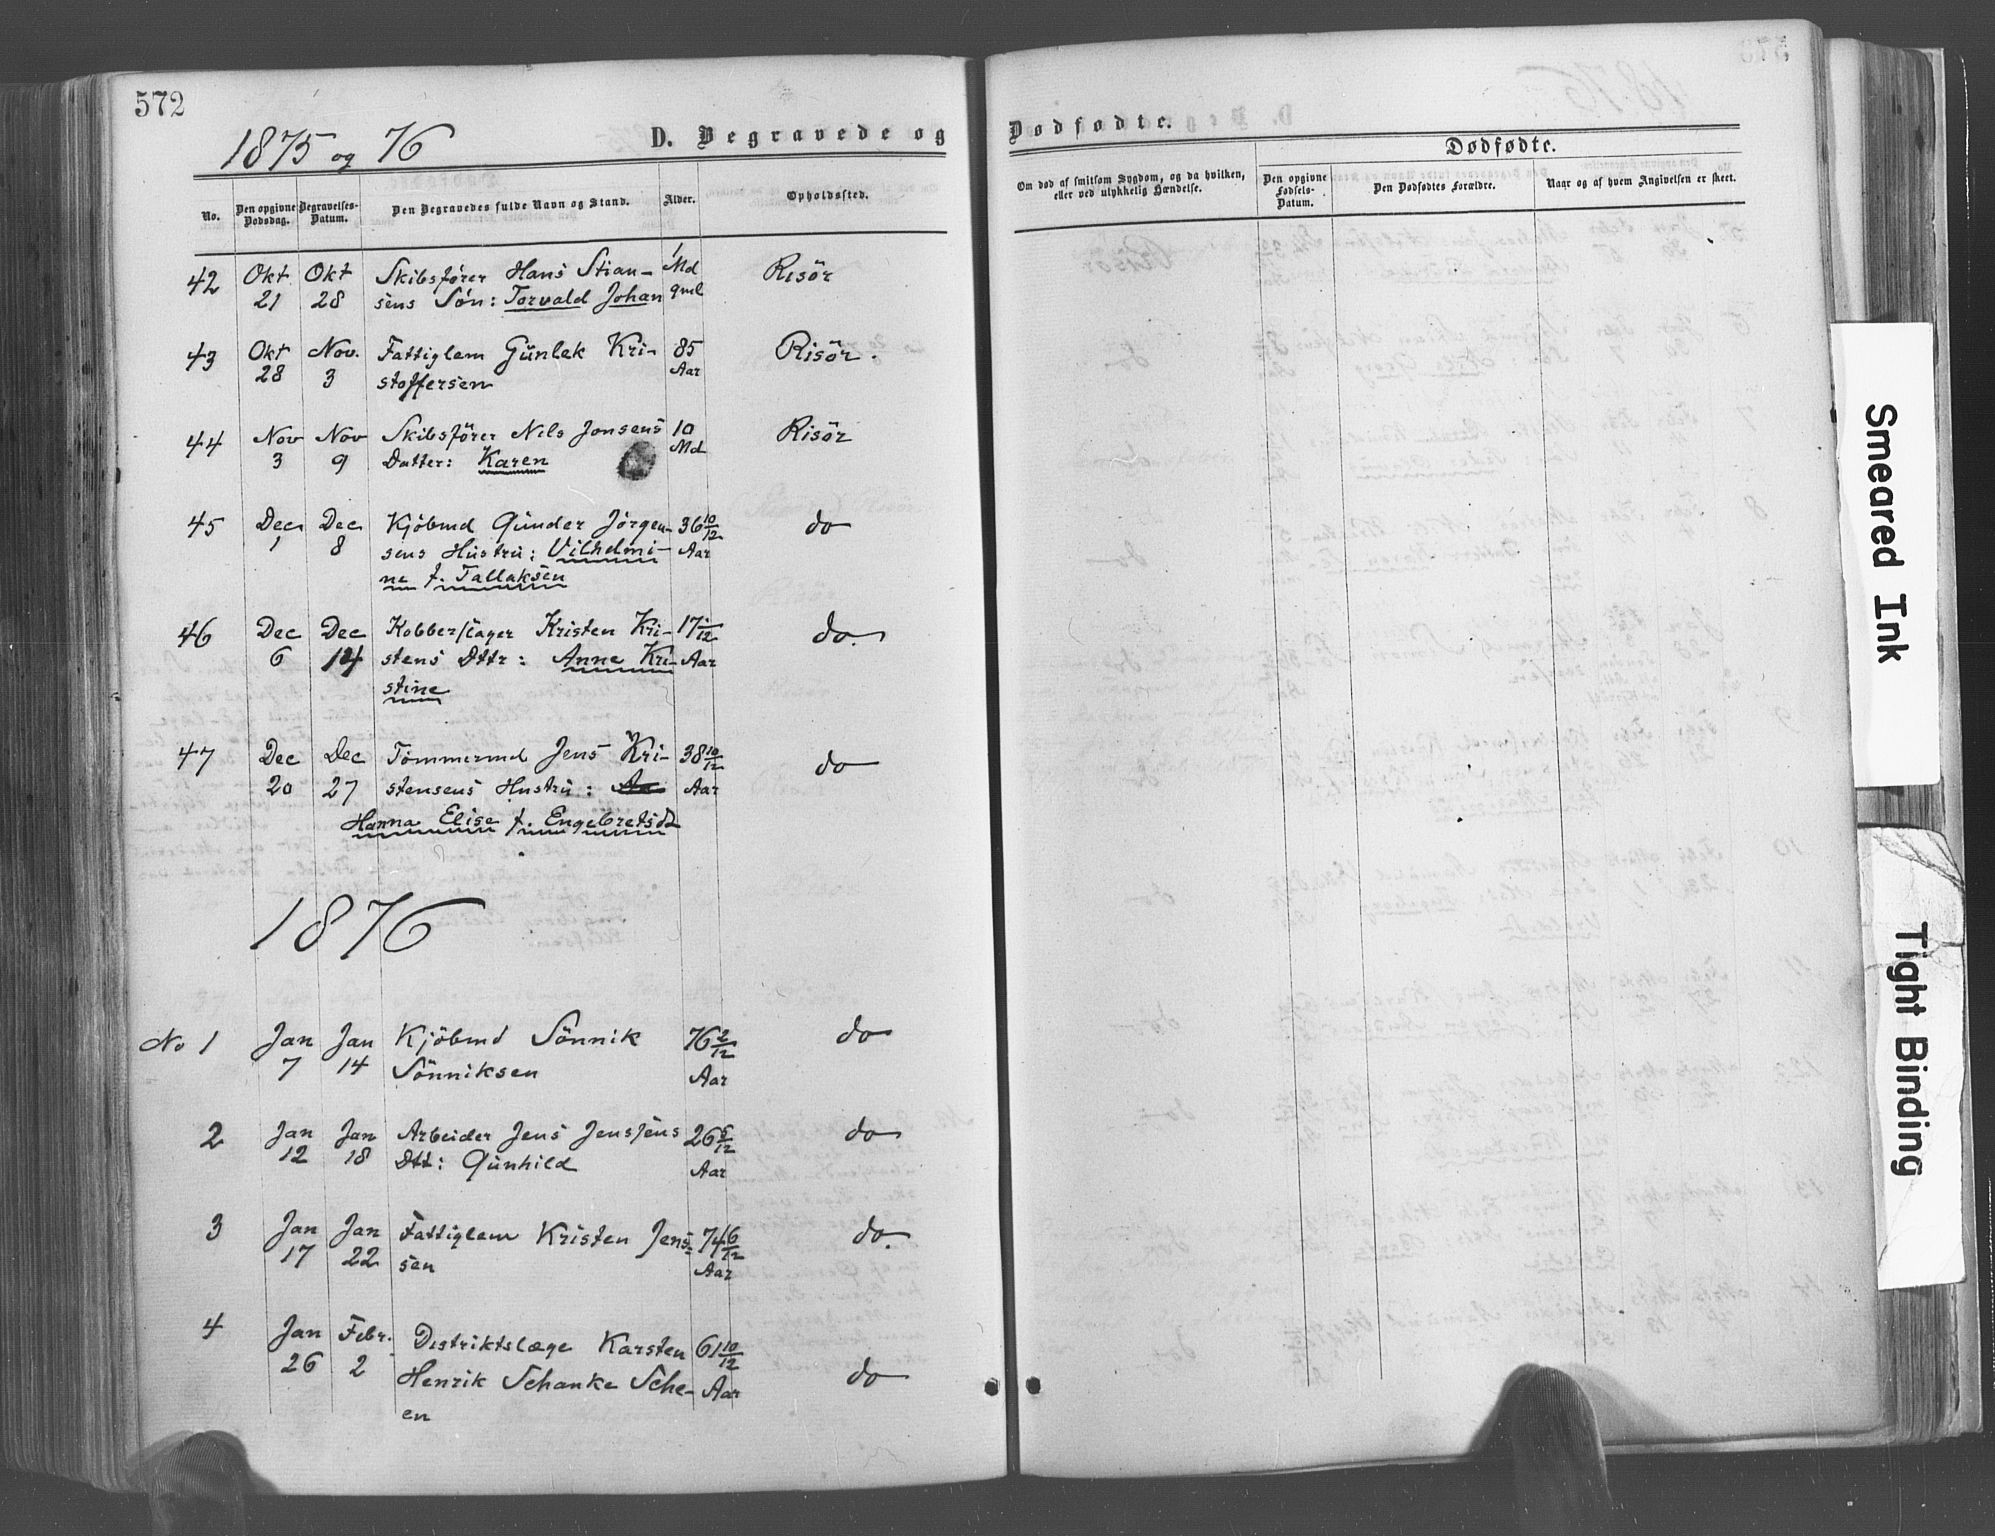 572
1875 og 76
D. Begravede og
Dødfødte.
Dødfødte.
No.
Den opgivne Dødsdag.
Begravelses-Datum.
Den Begravedes fulde Navn og Stand.
Alder.
Opholdssted.
Om død af smitsom Sygdom, og da hvilken, eller ved ulykkelig Hændelse.
Den opgivne Fødsels-Datum.
Den Dødfødtes Forældre.
Naar og af hvem Angivelsen er skeet.
42 Okt Okt Skibsfører Hans Stian- 1 Md Risör
21 28 sens Søn: Torvald Johan
43 Okt Nov. Fattiglem Günlek Kri- 85 Risör.
28 3 stoffersen Aar
44 Nov Nov Skibsfører Nils Jonsens 10 Risör
3 9 Datter: Karen Md
45 Dec Dec Kjöbmd Gunder Jörgen- 36 10/12 do
1 8 sens Hustru: Vilhelmi- Aar
ne f. Tallaksen
46 Dec Dec Kobberslager Kristen Kri- 17 1/12 do.
6 14 stens Dttr: Anne Kri- Aar
stine
47 Dec Dec Tömmermd Jens Kri- 38 10/12 do
20 27 stensens Hustru: Aar
Hanna Elise f. Engebretsdt
1876
No 1 Jan Jan Kjöbmd Sönnik 76 2/12 do
7 14 Sönniksen Aar
2 Jan Jan Arbeider Jens Jenssens 26 5/12 do
12 18 Dtt: Gunhild Aar
3 Jan Jan Fattiglem Kristen Jens- 74 6/12 do.
17 22 sen Aar
4 Jan Febr. Distriktslæge Karsten 61 10/12
26 2 Henrik Schanke Sche- Aar do
en
Smeared Ink
Tight Binding